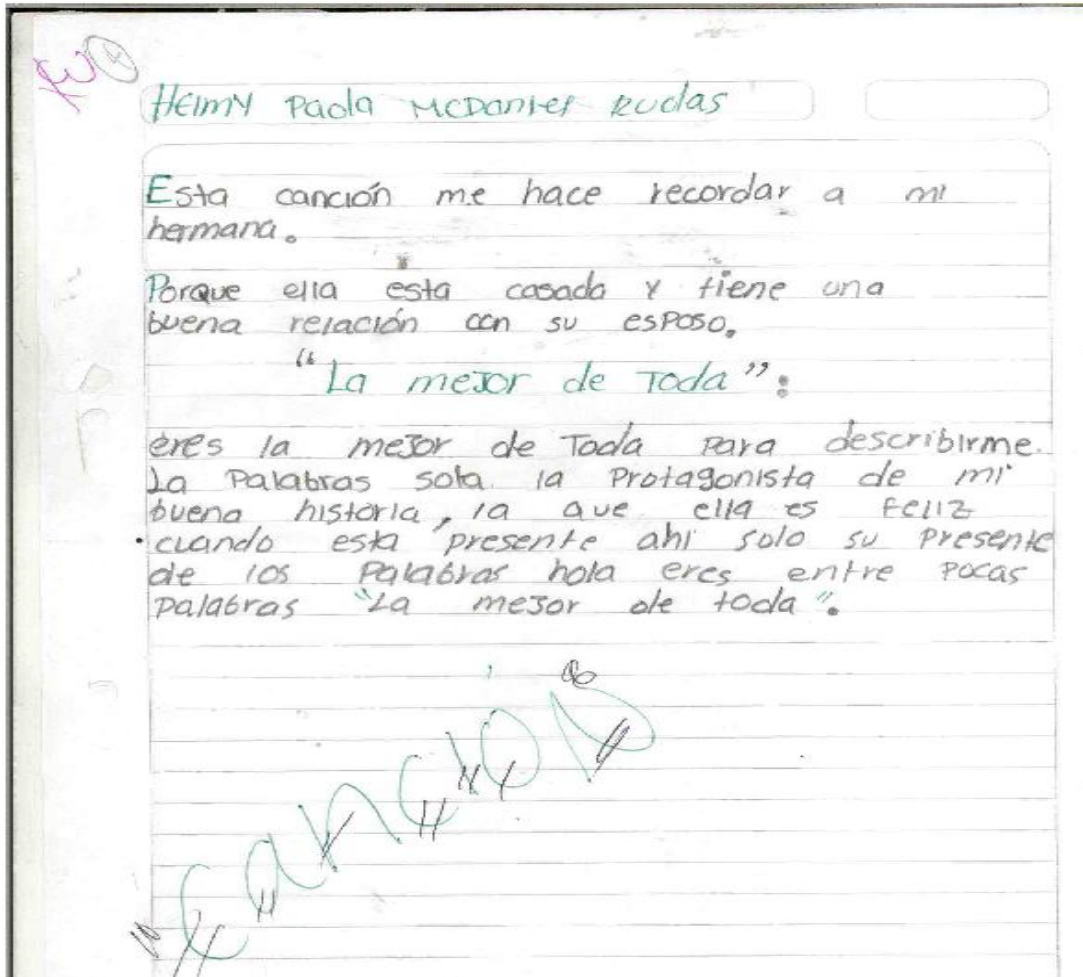 HEIMY Paola McDaniel Rudas
Esta canción me hace recordar a mi
hermana.
Porque ella esta casada y tiene una
buena relación con su esposo.
"La mejor de Toda":
eres la mejor de Toda para describirme.
La Palabras sola la Protagonista de mi
buena historia, la que ella es feliz
cuando esta presente ahí solo su presente
de los Palabras hola eres entre pocas
palabras "La mejor de toda".
"Canción"